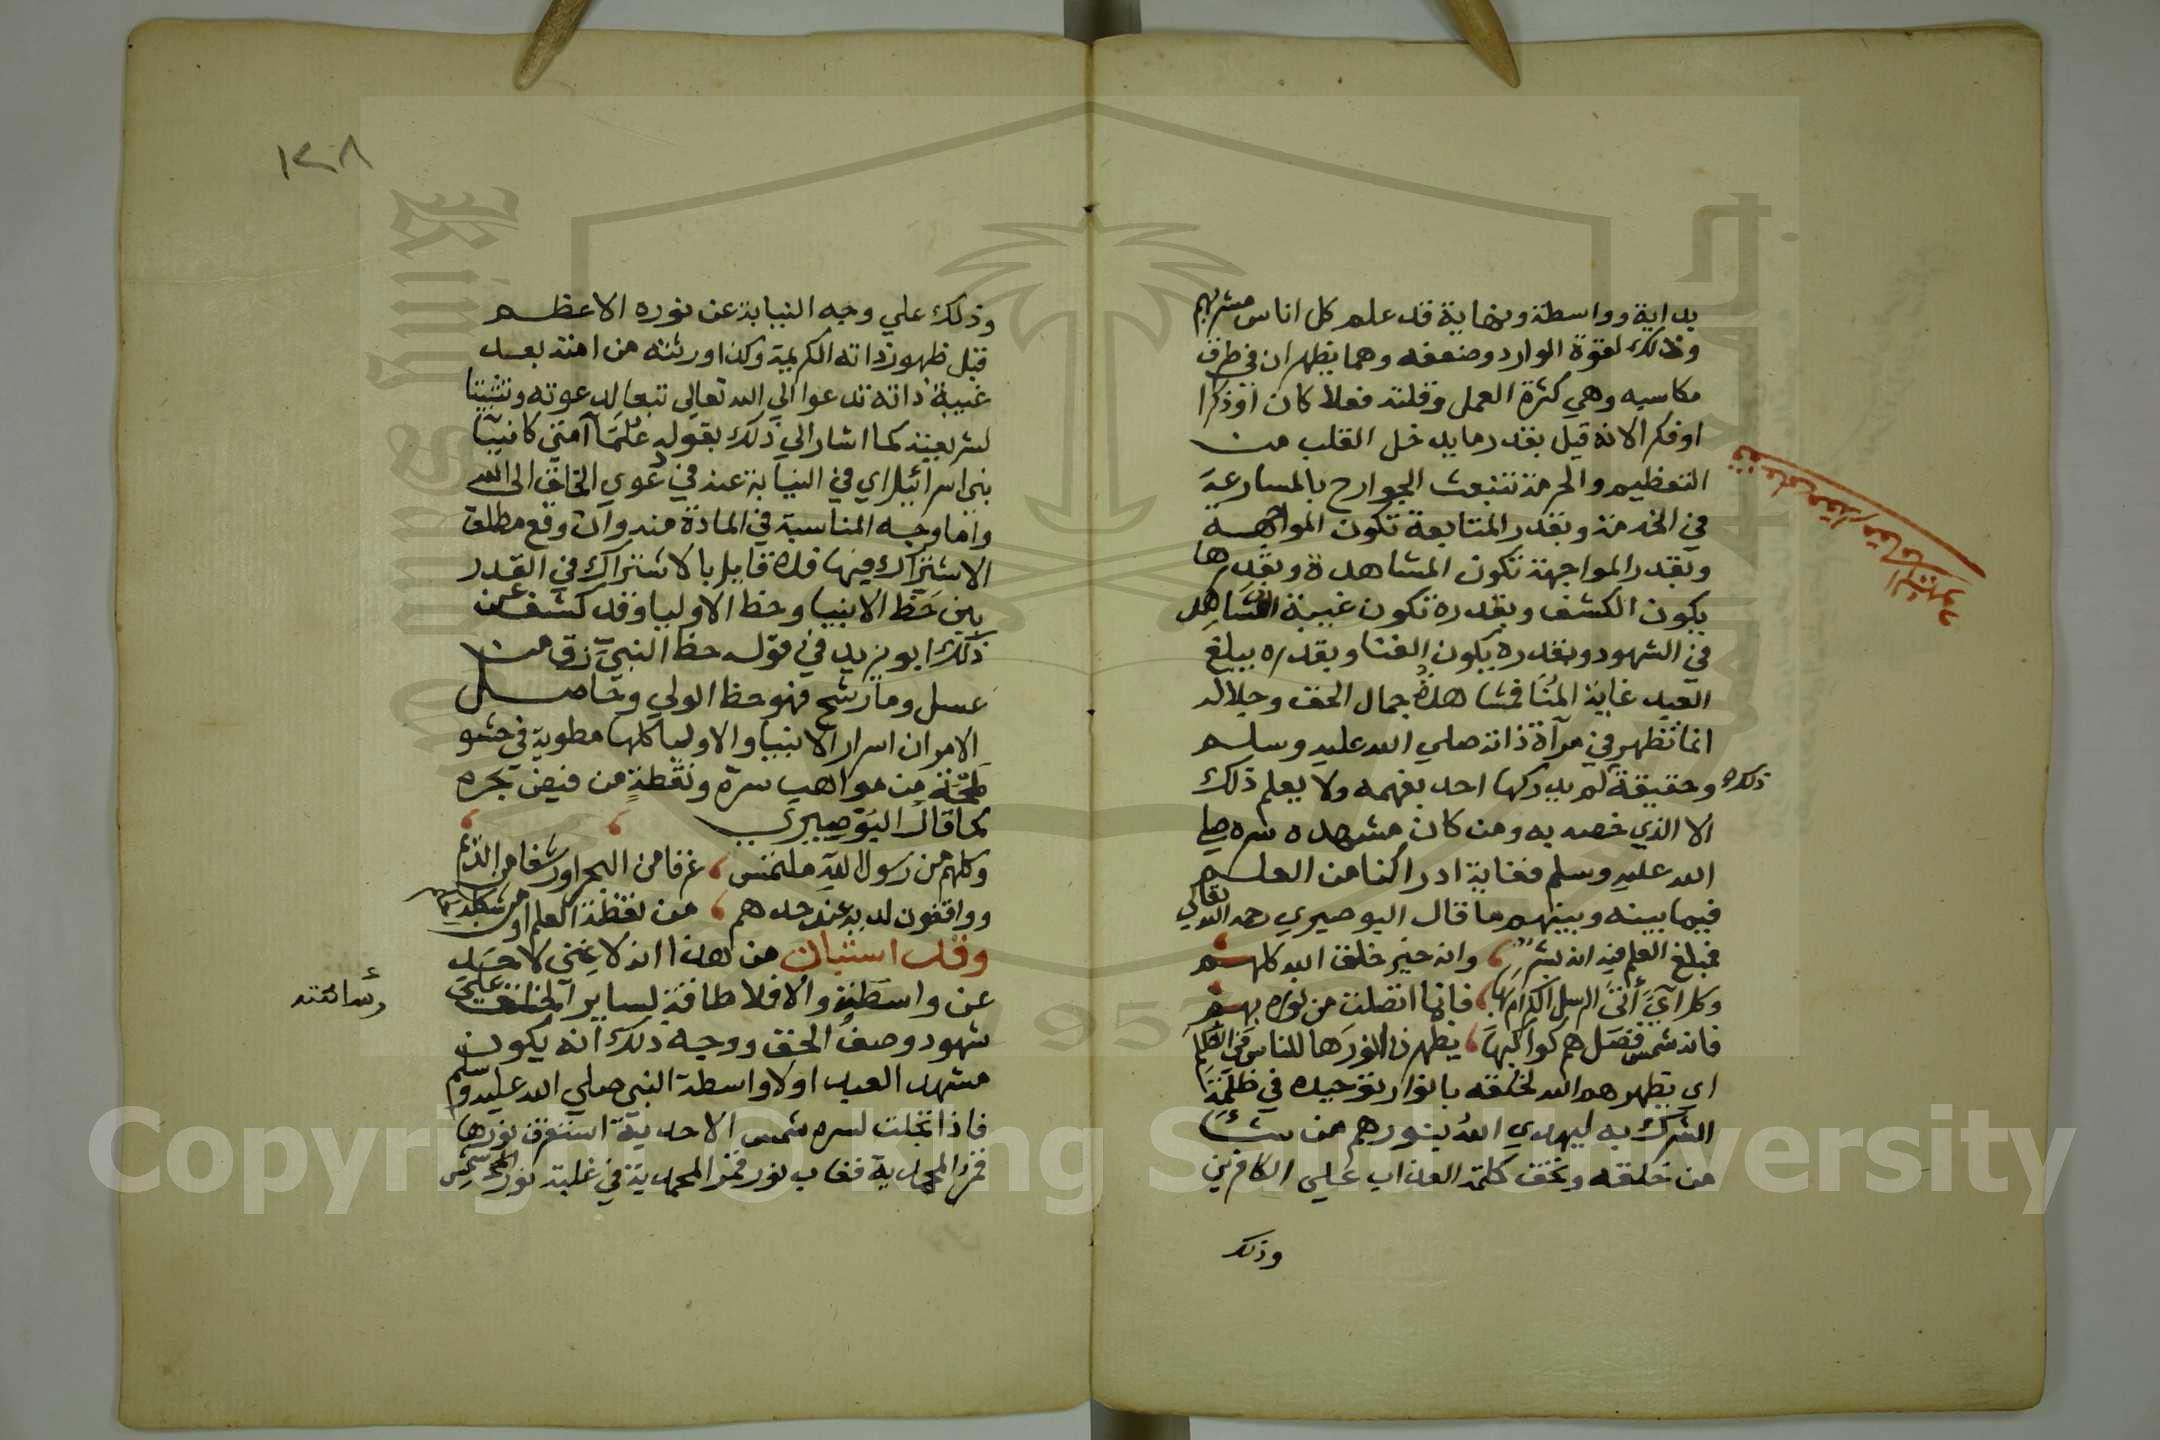 بداية وواسطة ونهاية قد علم كل اناس مشربهم
وذلك لقوة الوارد وضعفه وهما يظهران في طرف
مكاسبه وهي كثرة العمل وقلته فعلا كان او ذكرا
او فكرا لانه قيل بقدر ما يدخل القلب من
التعظيم والحرمة تنبعث الجوارح بالمسارعة
في الخدمة وبقدر المتابعة تكون المواجهة
وبقدر المواجهة تكون المشاهدة وبقدرها
يكون الكشف وبقدره تكون غيبة الشاهد
في الشهود وبقدره يكون الفنا وبقدره يبلغ
العبد غاية المنا فمشاهدة جمال الحق وجلاله
انما تظهر في مرآة ذاته صلي الله عليه وسلم
وحقيقة ذلك لم يدركها احد بفهمه ولا يعلم ذلك
الا الذي خصه به ومن كان مشهده سره صلي
الله عليه وسلم فغاية ادراكنا من العلم
فيما بيننه وبينهم ما قال البوصيري رحمه الله تعالي
فمبلغ العلم فيه انه بشر وانه خير خلق الله كلهم
وكل آيٍ أتى الرسل الكرام بها فانما اتصلت من نوره بهم
فانه شمس فضل هم كواكبها يظهرن انورها للناس في الظلم
اي يظهرهم الله لخلقه بانوار توحيده في ظلمة
الشرك به ليهدي الله بنورهم من يشأ
من خلقه وتحق كلمة العذاب علي الكافرين
وذلك
١٢٨
وذلك علي وجه النيابة عن نوره الاعظم
قبل ظهور ذاته الكريمة وكذا ورثته من امته بعد
غيبة ذاته تدعوا الي الله تعالي تبعا لدعوته وتثبيتا
لشريعته كما اشار الي ذلك بقوله علماً امتي كانبيآ
بني اسرائيل اي في النيابة عنه في دعوي الخلق الى الله
واما وجه المناسبة في المادة منه وان وقع مطلق
الاشتراك فيها فلا قايل بالاشتراك في القدر
بين حظ الانبيا وحظ الاوليا وقد كشف عن
ذلك ابو يزيد في قوله حظ النبي زق من
عسل وما رشح فهو حظ الولي وحاصل
الامر ان اسرار الانبيا والاوليا كلها مطوية في حشو
لمحة من مواهب سره ونقطة من فيض بحره
كما قال البوصيري
وكلهم من رسول الله ملتمس غرفا من البحر او رشفا من الديم
وواقفون لديه عند حدهم من نقطة العلم او من شكلة الحكم
وقد استبان من هذا انه لا غنى لاحد
عن واسطته والا فلا طاقة لساير الخلق علي
شهود وصف الحق ووجه ذلك انه يكون
مشهد العبد اولا واسطة النبي صلي الله عليه وسلم
فاذا تجلت لسره شمس الاحدية استغرق نورها
قمر المحمدية فغاب نور قمر المحمدية في غلبة نور شمس